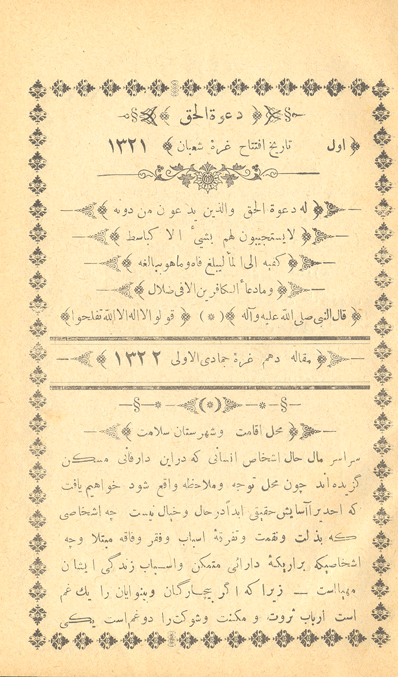 دعوة الحق
اول تاریخ افتتاح غرهٔ شعبان ۱۳۲۱
له دعوة الحق والذین یدعون من دونه
لا یستجیبون لهم بشیءٔ الا کباسط
کفیه الی المأ لیبلغ فاه وماهو ببالغه
ومادعأ الکافرین الا فی ضلال
قال النبی صلی الله علیه وآله (٭) قولوا لااله الاالله تفلحوا
مقاله دهم غرهٔ جمادی الاولی ۱۳۲۲
(٭)
محل اقامت وشهرستان سلامت
سراسر مال حال اشخاص انسانی که دراین دارفانی مسکن
گزیده‌اند چون محل توجه وملاحظه واقع شود خواهیم یافت
که احدیرا آسایش حقیقی ابدا درحال وخیال نیست چه اشخاصی
که بذلت ونقمت وتفرقهٔ اسباب وفقر وفاقه مبتلا وچه
اشخاصیکه براریکهٔ دارائی متمکن واسباب زندگی ایشان
مهیااست — زیرا که اگر بیچارگان وبینوایان را یك غم
است ارباب ثروت و مکنت وشوکت‌را دوغم‌است یکی